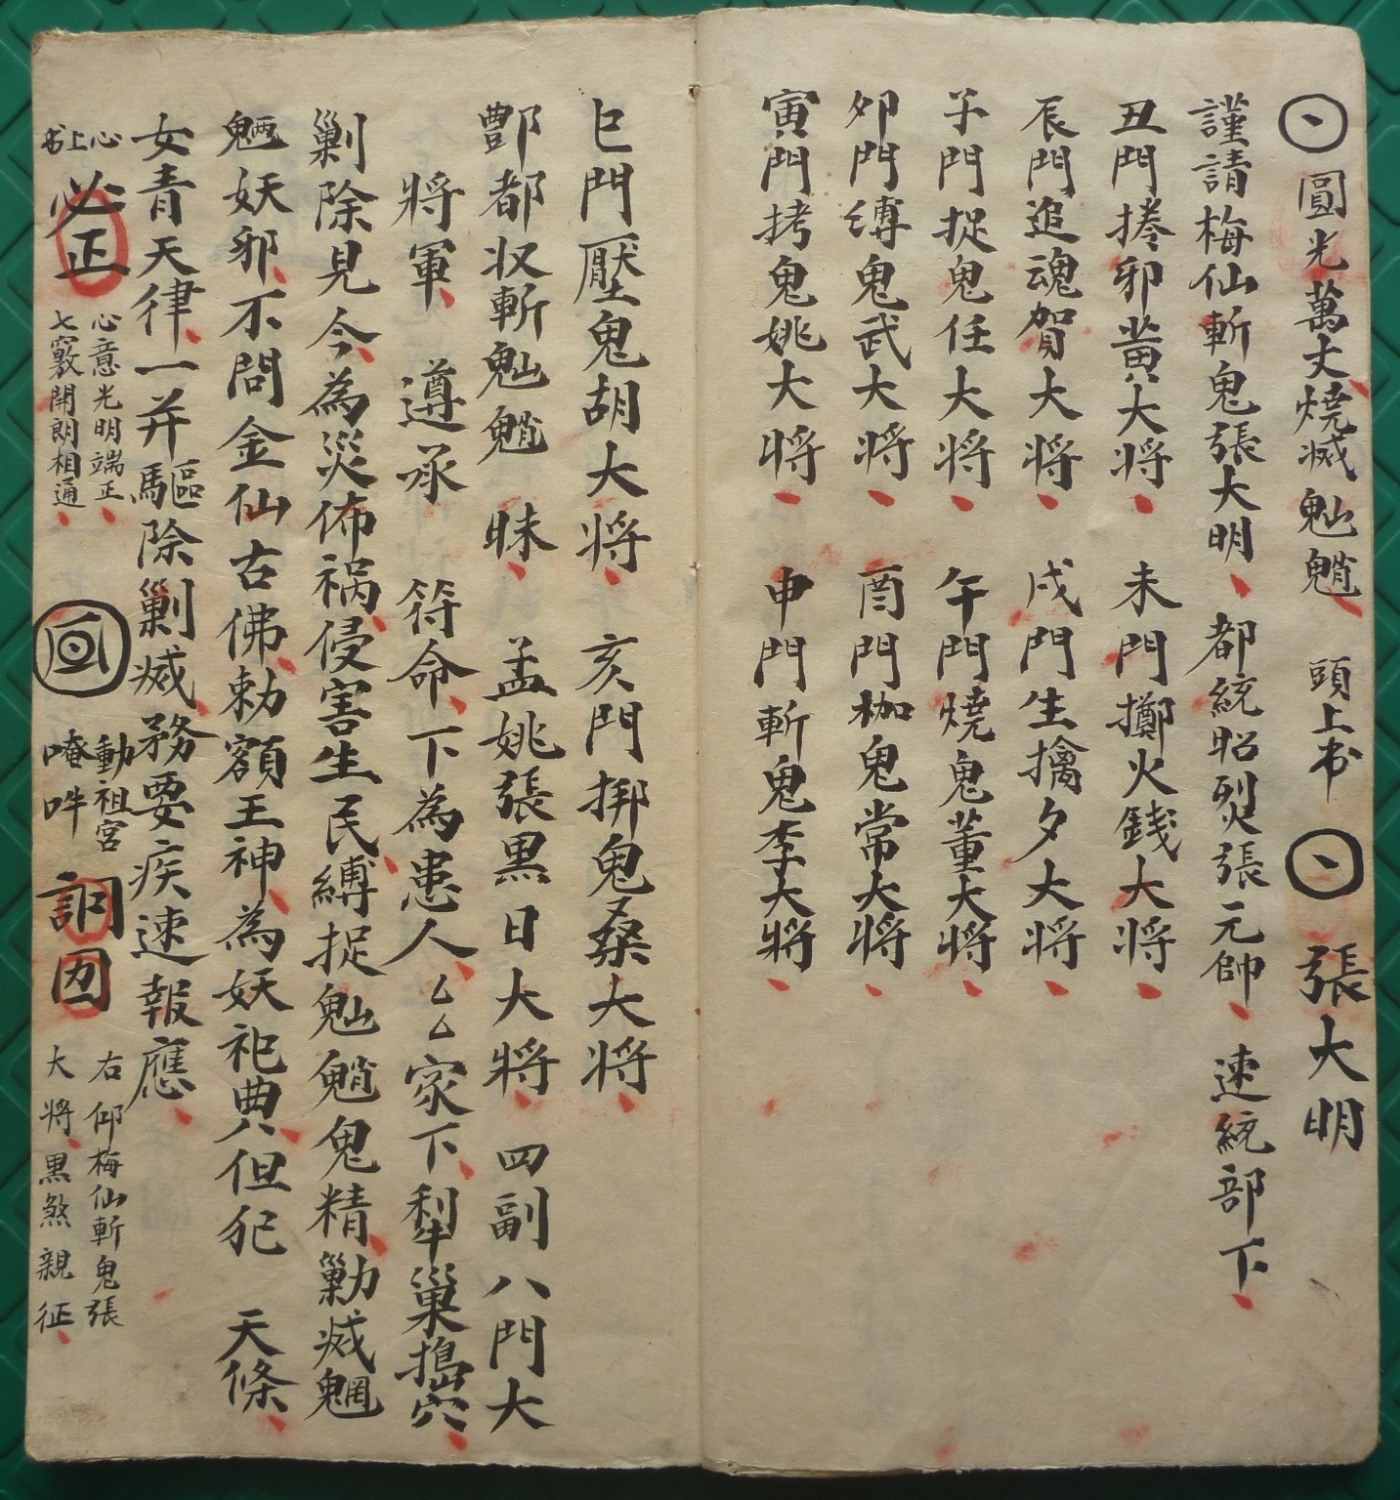 圓光萬丈燒滅魈魈 頭上书 張大明
謹請梅仙斬鬼張大明 都統昭烈張元帥 速統部下
丑門捲邪黃大將 未門擲火錢大將
辰門追魂賀大將 戌門生擒夕大將
子門捉鬼任大將 午門燒鬼董大將
夘門縛鬼武大將 酉門枷鬼常大將
寅門拷鬼姚大將 申門斬鬼李大將
巳門壓鬼胡大將 亥門挷鬼桑大將
酆都収斬 眛 孟姚張黑日大將 四副八門大
將軍 遵承 符命下為患人厶厶家下犁巢搗穴
剿除見今為災佈禍侵害生民縛捉鬼精勦滅魍
魎妖邪不問金仙古佛勅額王神為妖祀典但犯 天條
女青天律一并驅除剿滅務要疾速報應
心上书
必正
心意光明端正
七竅開朗相通
動祖宮
唵吽
右仰梅仙斬鬼張
大將黑煞親征